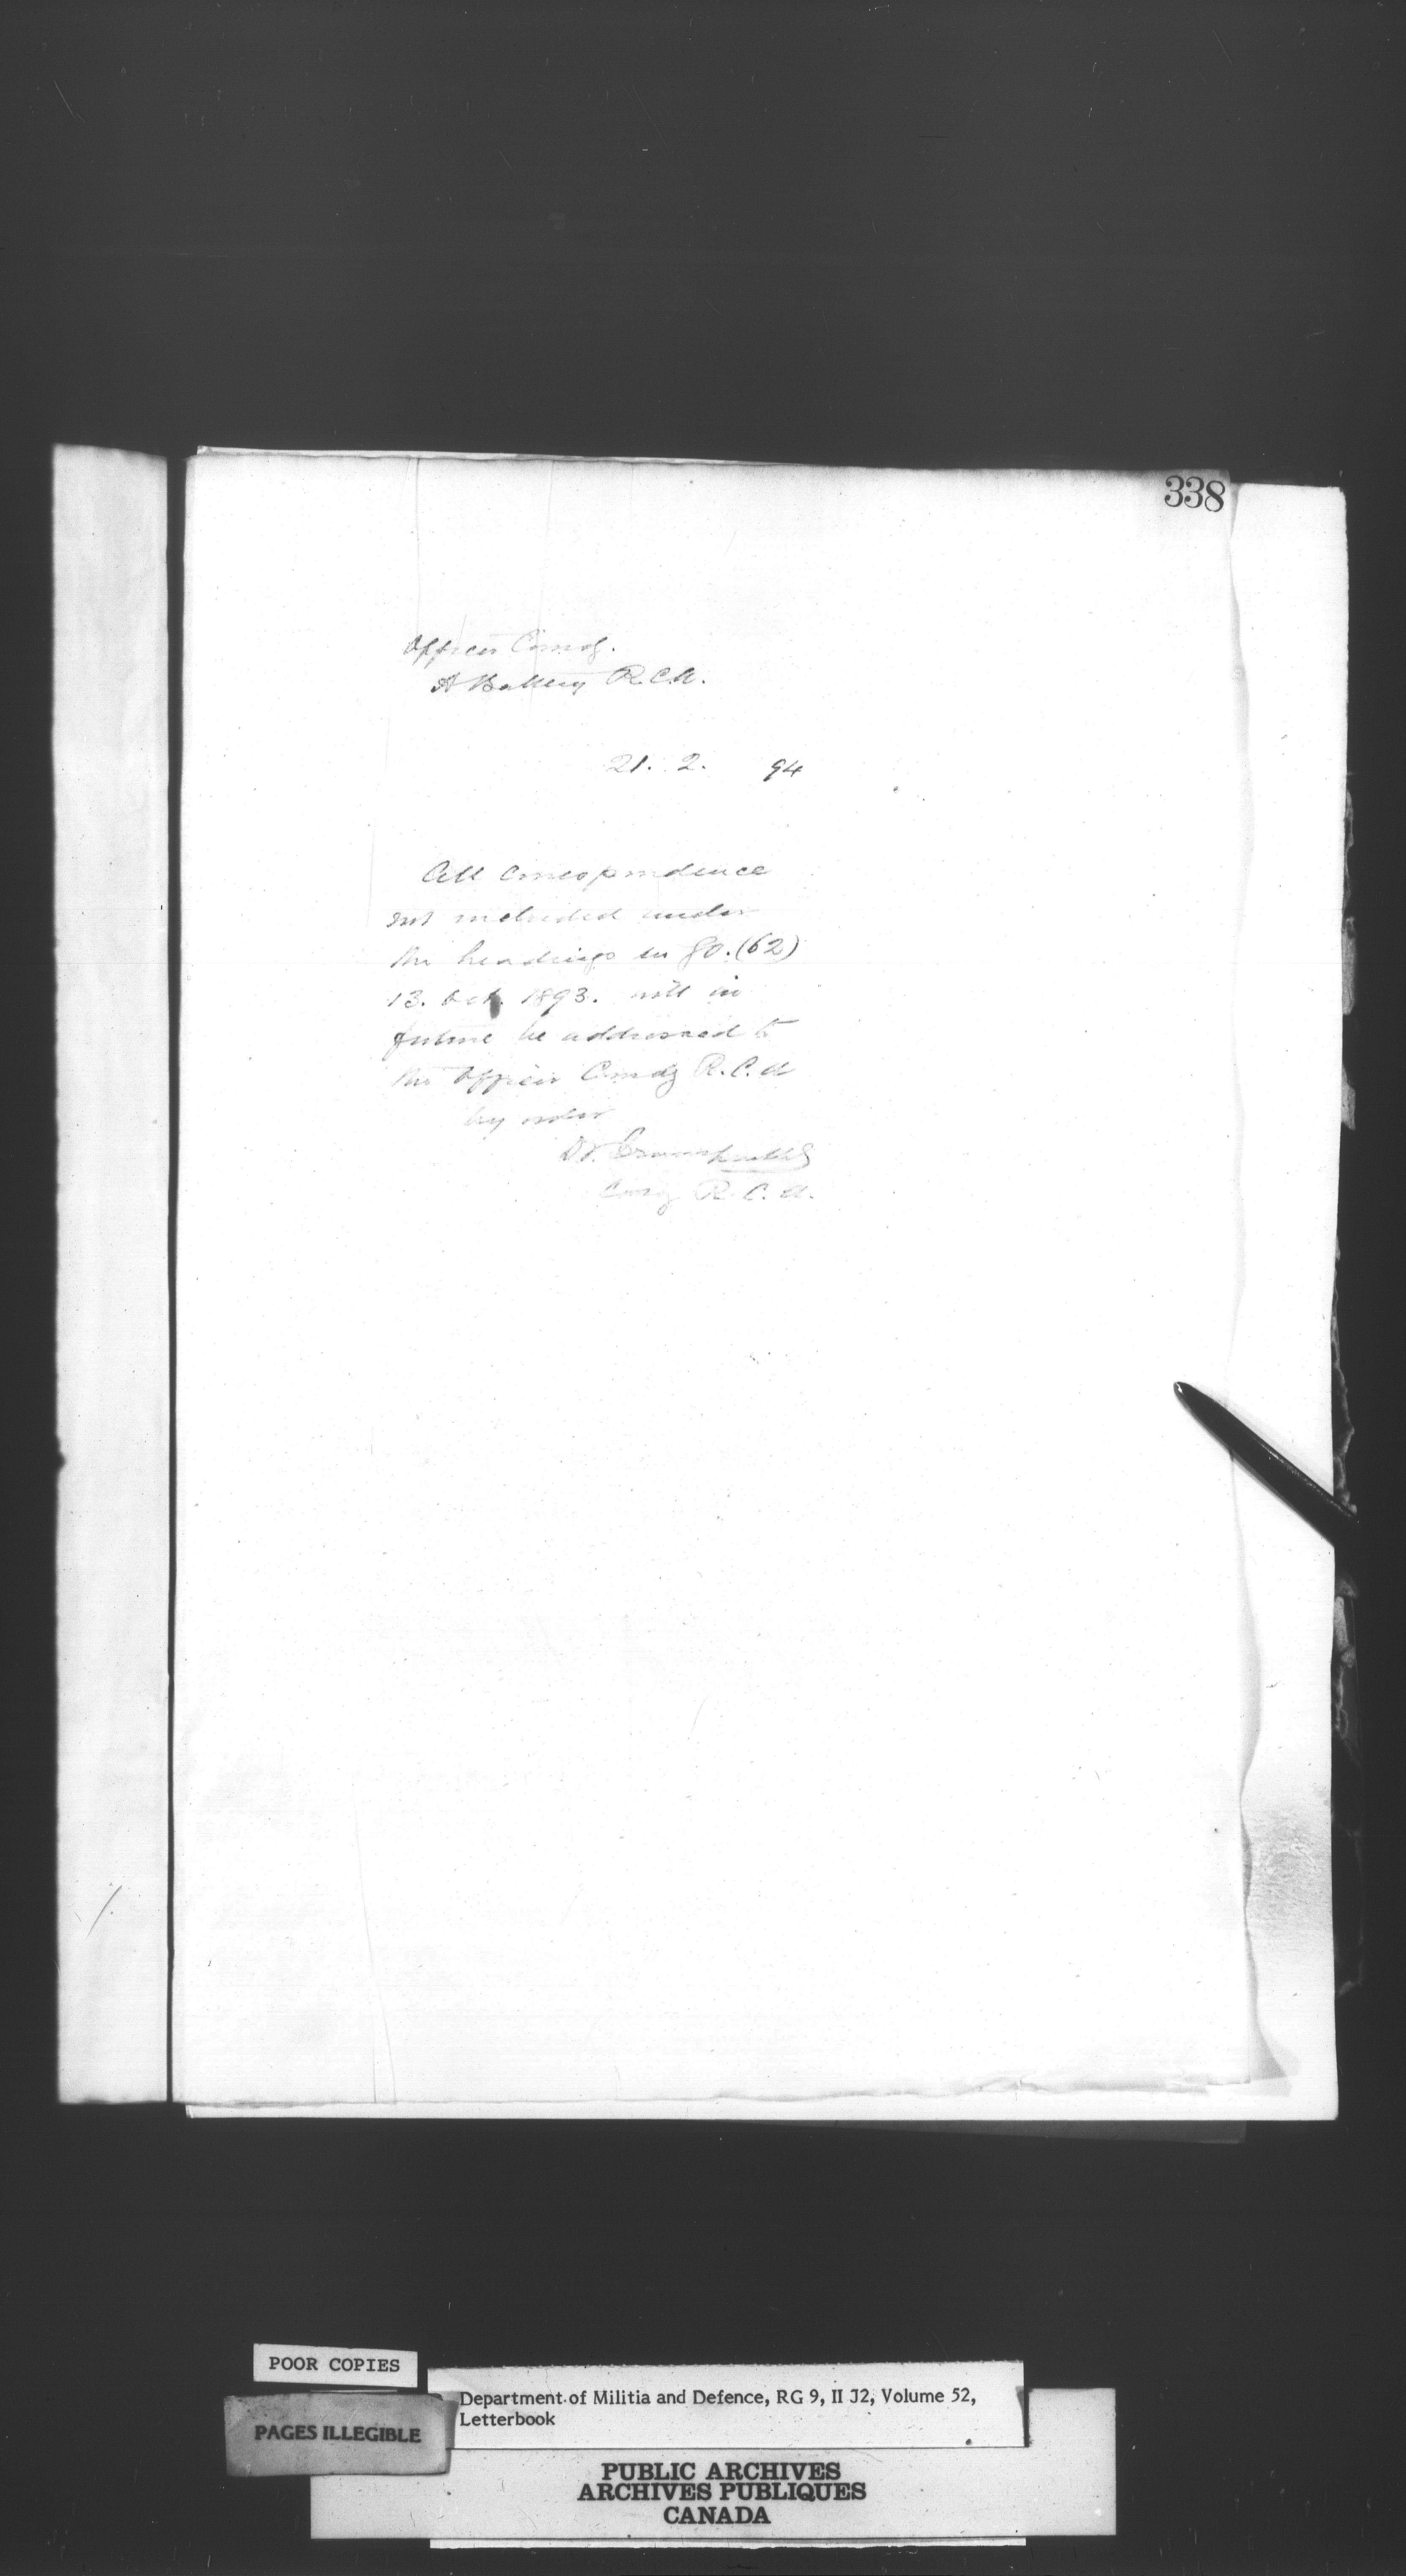 338
Officer Comdg.
A Battery R.C.A.
21. 2. 94
All correspondence
not included under
the headings in G.O. (62)
13. Oct. 1893. will in
future be addressed to
the Officer Comdg R.C.A
by order
Comdg R.C.A.
POOR COPIES
PAGES ILLEGIBLE
Department of Militia and Defence, RG 9, II J2, Volume 52,
Letterbook
PUBLIC ARCHIVES
ARCHIVES PUBLIQUES
CANADA